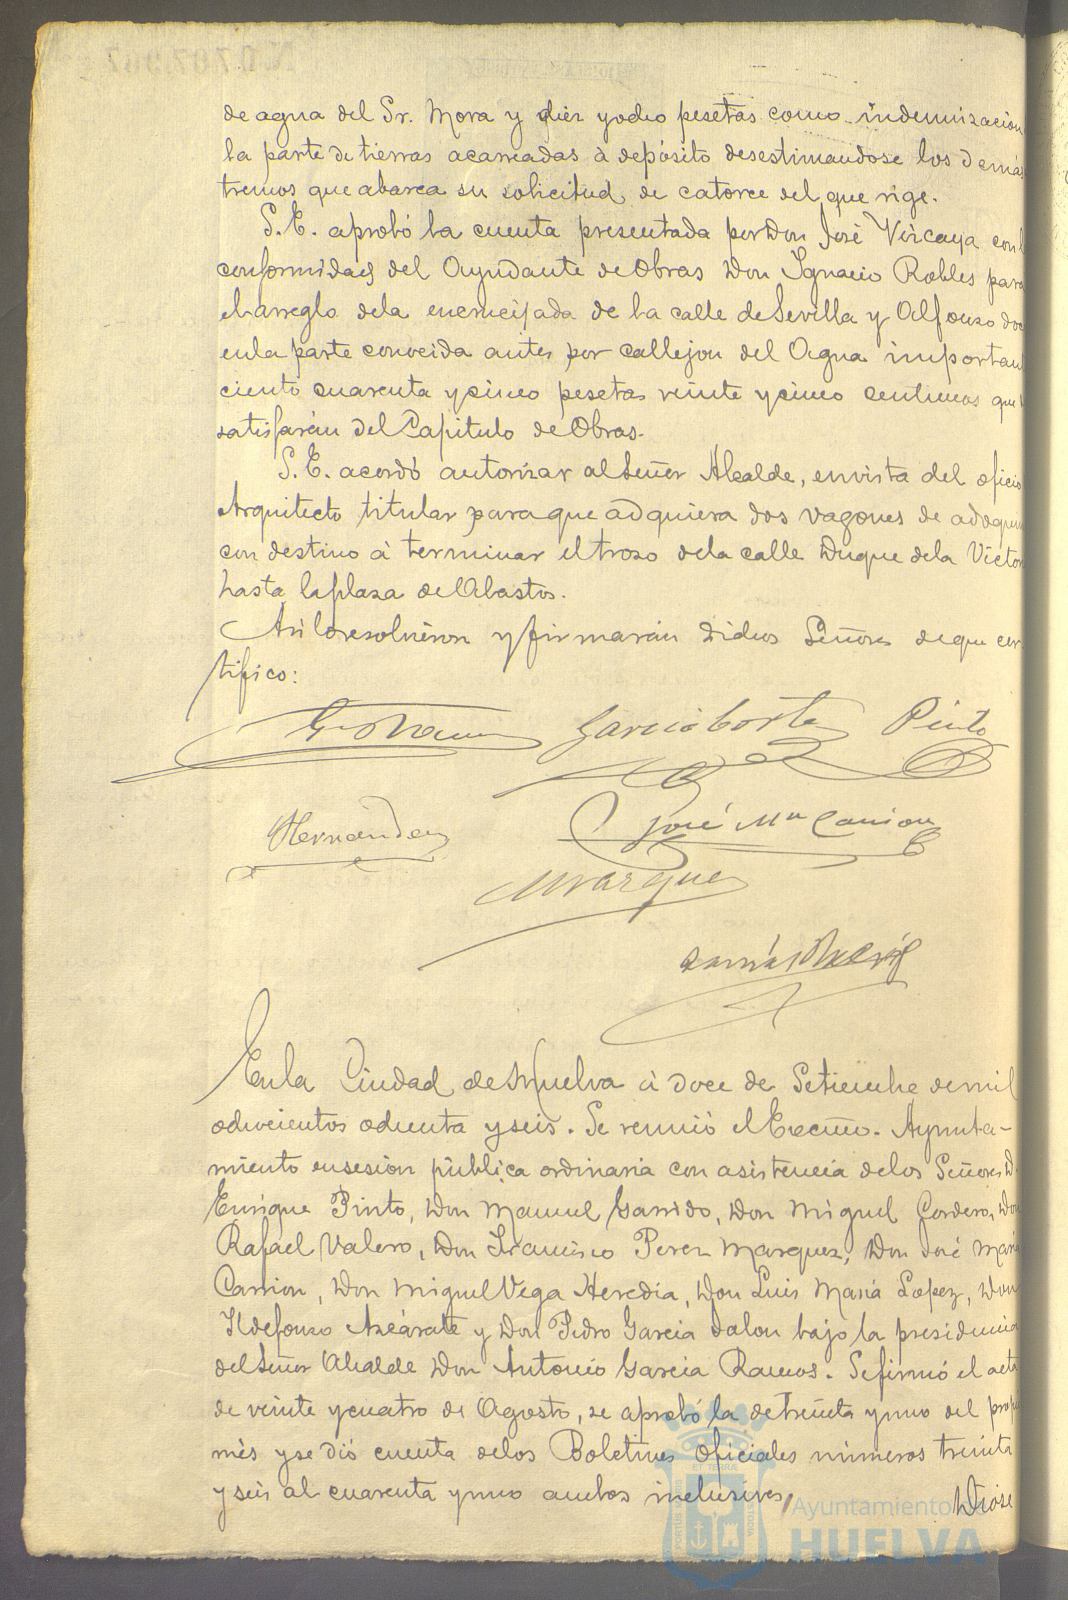 de agua del Sr. Mora y diez y ocho pesetas como indemnizacion
la parte de tierras acarreadas á depósito desestimandose los demás
tremos que abarca su solicitud de catorce del que rige.
S.E. aprobó la cuenta presentada por Don José Vizcaya con l
conformidad del Ayudante de Obras Don Ignacio Robles para
el arreglo de la encrucijada de la calle de Sevilla y Alfonso doc
en la parte conocida antes por callejon del Agua important
ciento cuarenta y cinco pesetas veinte y cinco centimos que
satisfarán del Capitulo de Obras.
S.E. acordó autorizar al Señor Alcalde, en vista del oficio
Arquitecto titular para que adquiera dos vagones de adoquin
con destino á terminar el trozo de la calle Duque de la Victor
hasta la plaza de Abastos.
Asi lo resolvieron y firmarán dichos Señores de que cer
tifico:
Garcia Cortes Pinto
Hernandez José Mª Carrion
Marquez
En la Ciudad de Huelva á doce de Setiembre de mil
ochocientos ochenta y seis. Se reunió el Excmo. Ayunta-
miento en sesion pública ordinaria con asistencia de los Señores D.
Enrique Pinto, Don Manuel Garrido, Don Miguel Cordero, Don
Rafael Valero, Don Francisco Perez Marquez, Don José Maria
Carrion, Don Miguel Vega Heredia, Don Luis Maria Lopez, Don
Ildefonso Azcárate y Don Pedro Garcia Jalon bajo la presidencia
del Señor Alcalde Don Antonio Garcia Ramos. Se firmó el acta
de veinte y cuatro de Agosto, se aprobó la de treinta y uno del propi
mes y se dió cuenta de los Boletines oficiales números treinta
y seis al cuarenta y uno ambos inclusives,
Dióse
Ayuntamiento de
HUELVA